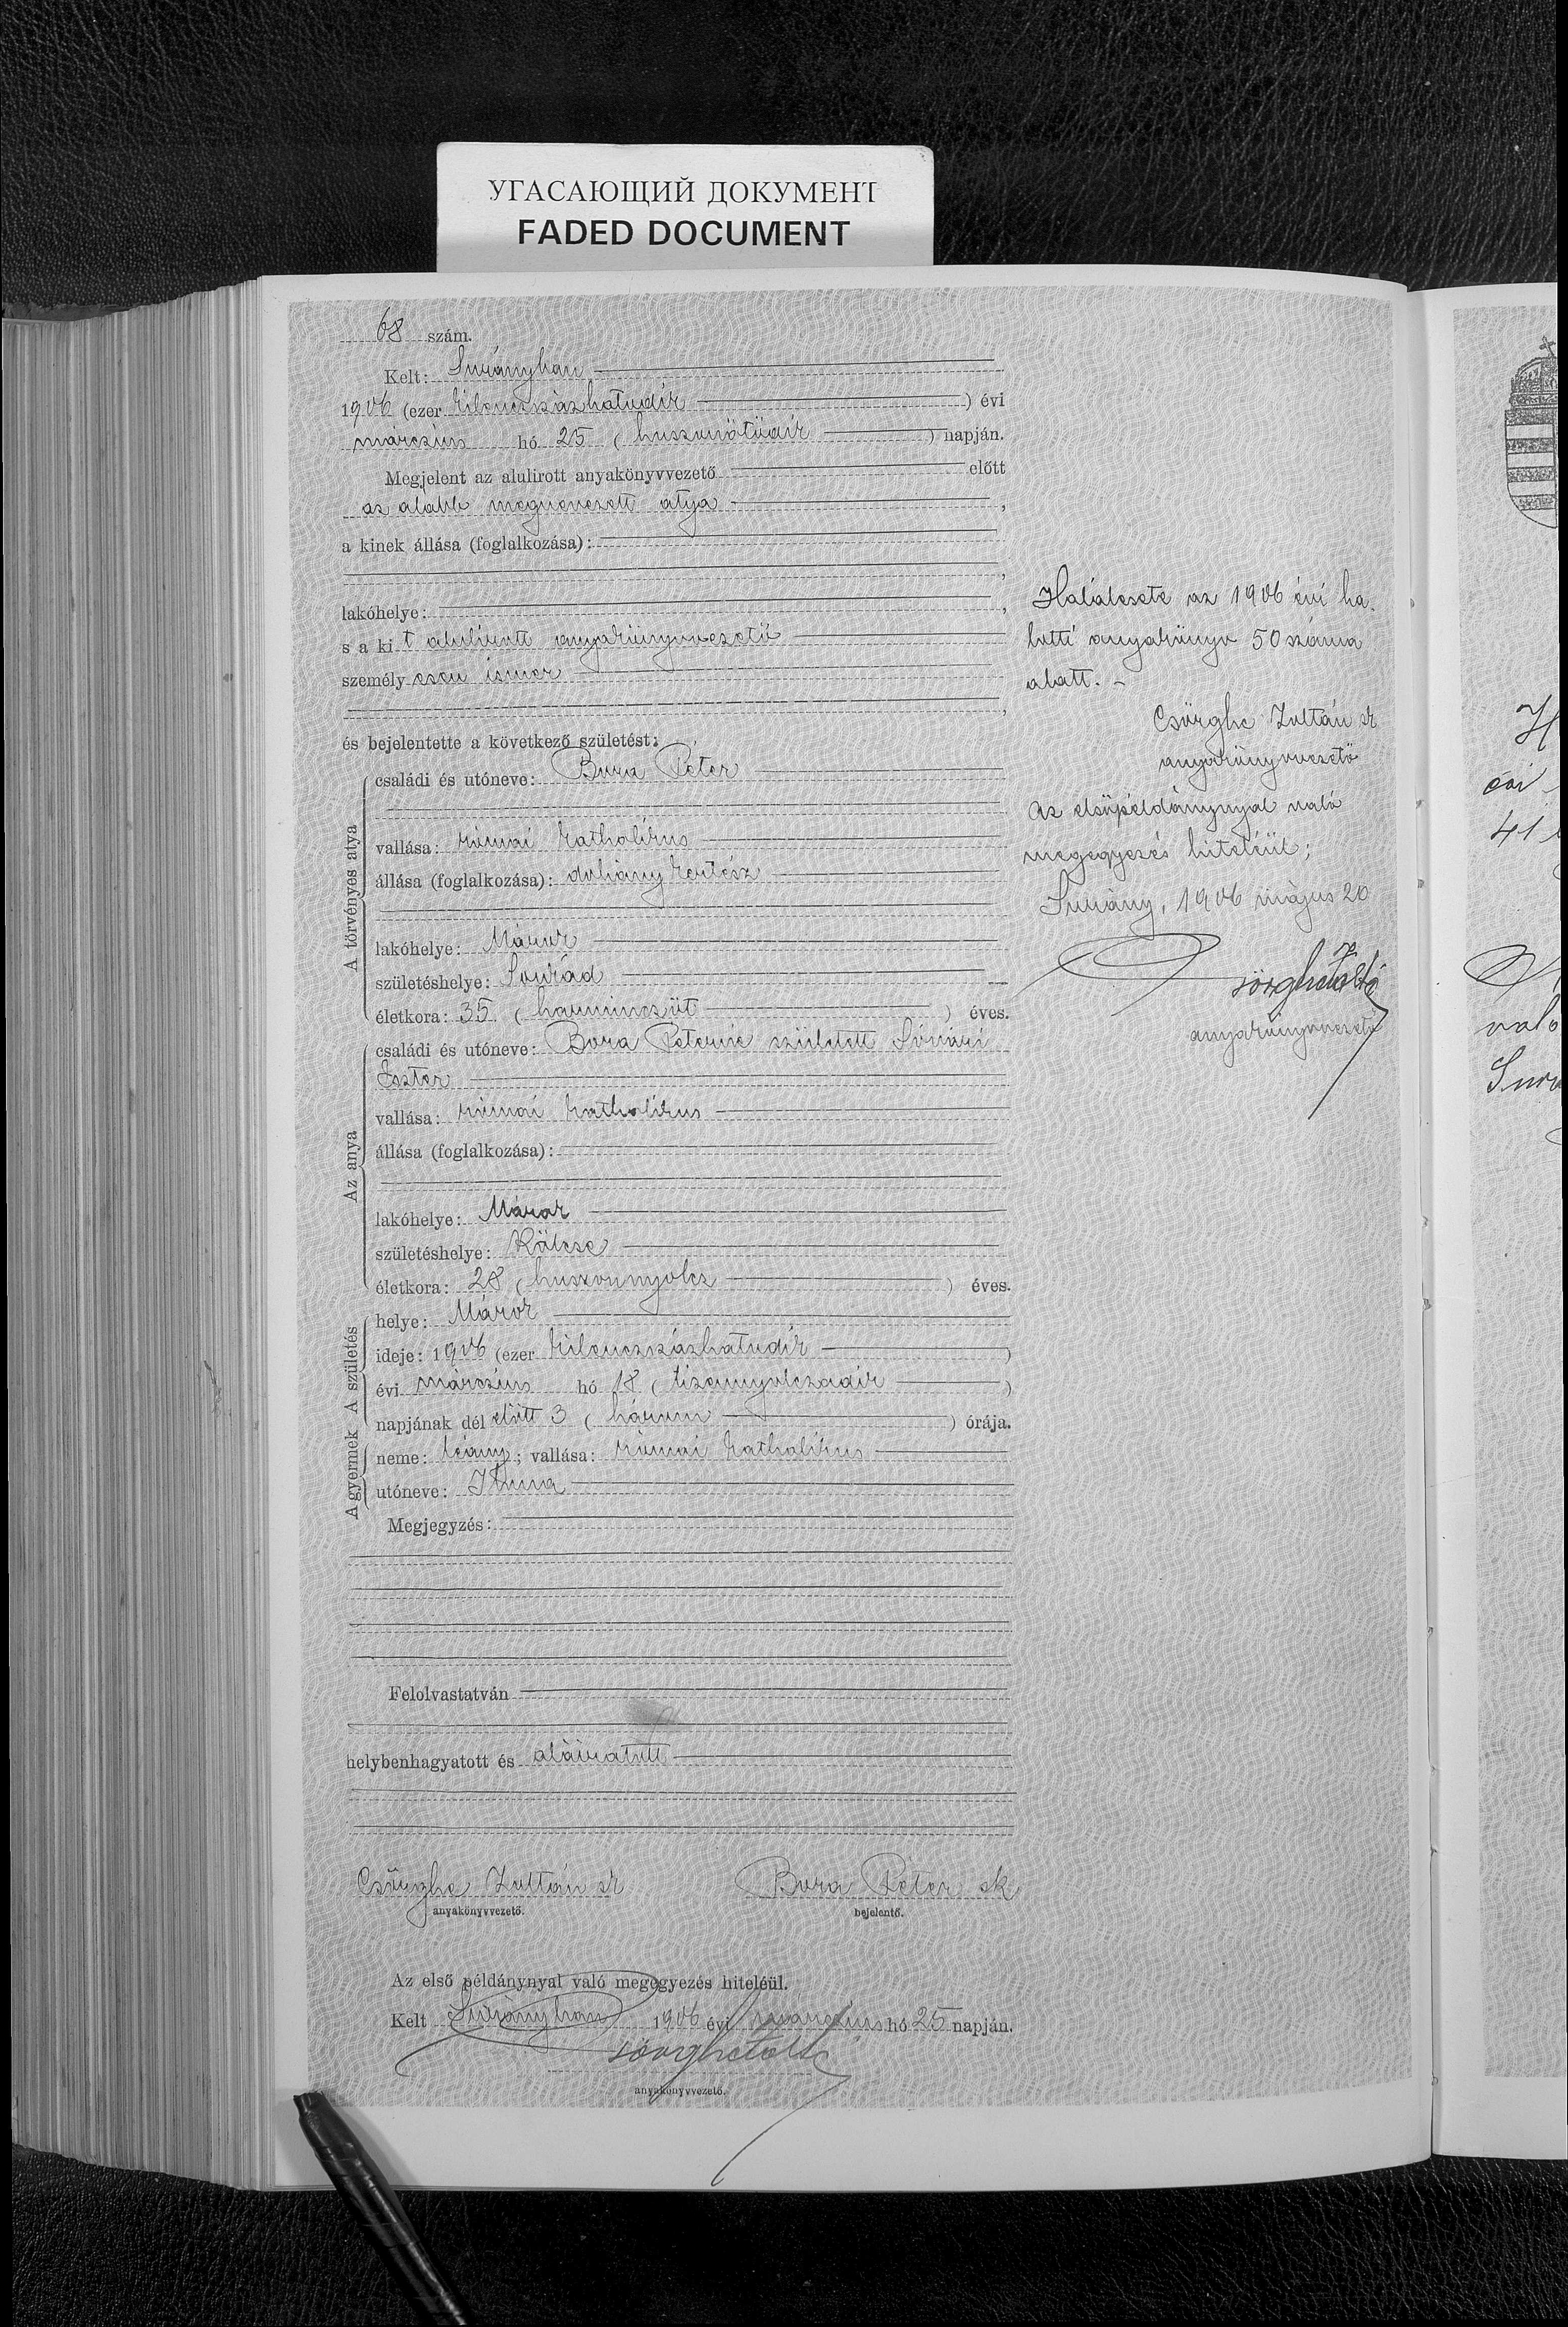 УГАСАЮЩИЙ ДОКУМЕНТ
FADED DOCUMENT
68 szám.
Kelt: Surányban
1906 (ezer kilenczszázhatodik) évi
márczius hó 25 (huszonötödik) napján.
Megjelent az alulirott anyakönyvvezető előtt
az alább megnevezett atya,
a kinek állása (foglalkozása):
lakóhelye:
s a kit alulirott anyakönyvvezető
személyesen ismer
és bejelentette a következő születést:
A törvényes atya
családi és utóneve: Bora Péter
vallása: római katholikus
állása (foglalkozása): dohánykertész
lakóhelye: Márok
születéshelye:
életkora: 35 (harminczöt) éves.
Az anya
családi és utóneve: Bora Péterné született Sóvári
Eszter
vallása: római katholikus
állása (foglalkozása):
lakóhelye: Márok
születéshelye: Kölcse
életkora: 28 (huszonnyolcz) éves.
A születés
helye: Márok
ideje: 1906 (ezer kilenczszázhatodik)
évi márczius hó 18 (tizennyolczadik)
napjának dél előtt 3 (három) órája.
A gyermek
neme: leány; vallása: római katholikus
utóneve: Ilona
Megjegyzés:
Felolvastatván
helybenhagyatott és aláiratott
Csörghe Zoltán sk
anyakönyvvezető.
Bora Péter sk
bejelentő.
Az első példánynyal való megegyezés hiteléül.
Kelt Surányban 1906 évi márczius hó 25 napján.
anyakönyvvezető.
Halálesete az 1906 évi ha-
lotti anyakönyv 50 száma
alatt. -
Csörghe Zoltán sk
anyakönyvvezető
Az elsőpéldánynyal való
megegyezés hiteléül;
Surány, 1906 május 20
anyakönyvvezető
évi
41
való